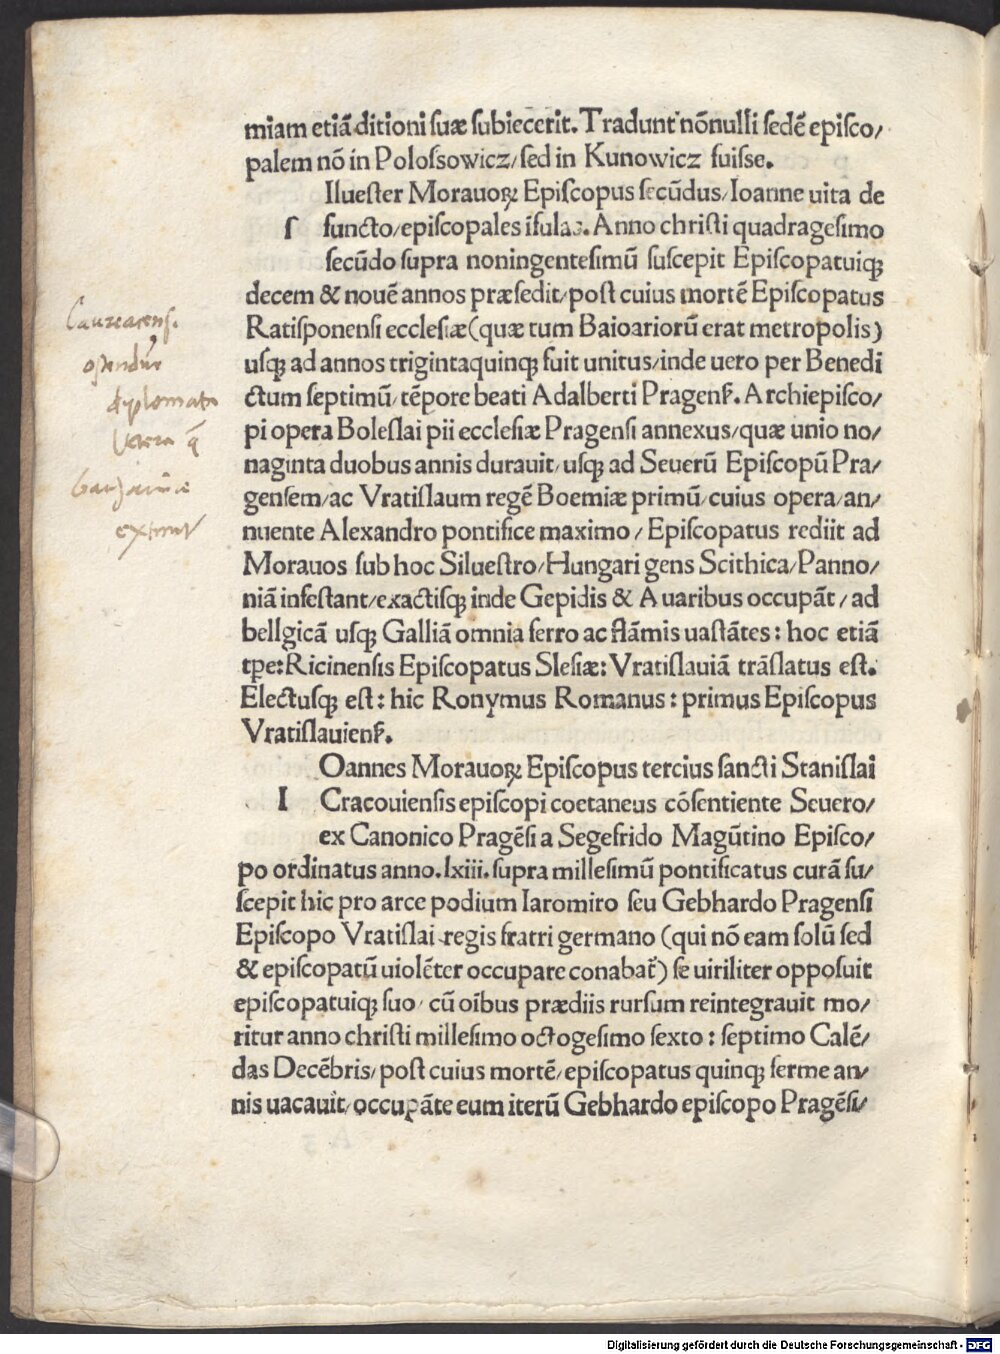 miam etiā ditioni suæ subiecerit. Tradunt nōnulli sedē episco/
palem nō in Polossowicz/sed in Kunowicz fuisse.
Iluester Morauoꝝ Episcopus secūdus/Ioanne uita de
ſ functo/episcopales īfulas. Anno christi quadragesimo
secūdo supra noningentesimū suscepit Episcopatuiqꝫ
decem & nouē annos præsedit/post cuius mortē Episcopatus
Ratisponensi ecclesiæ(quæ tum Baioariorū erat metropolis)
usqꝫ ad annos trigintaquinqꝫ fuit unitus/inde uero per Benedi
ctum septimū/tēpore beati Adalberti Pragenẜ. Archiepisco/
pi opera Boleslai pii ecclesiæ Pragensi annexus/quæ unio no/
naginta duobus annis durauit/usqꝫ ad Seuerū Episcopū Pra/
gensem/ac Vratislaum regē Boemiæ primū/cuius opera/an/
nuente Alexandro pontifice maximo/Episcopatus rediit ad
Morauos sub hoc Siluestro/Hungari gens Scithica/Panno/
niā infestant/exactisqꝫ inde Gepidis & Auaribus occupāt/ad
bellgicā usqꝫ Galliā omnia ferro ac flāmis uastātes: hoc etiā
tꝑe: Ricinensis Episcopatus Slesiæ: Vratislauiā trāslatus est.
Electusqꝫ est: hic Ronymus Romanus: primus Episcopus
Vratislauienẜ.
Oannes Morauoꝝ Episcopus tercius sancti Stanislai
I Cracouiensis episcopi coetaneus cōsentiente Seuero/
ex Canonico Pragēsi a Segefrido Magūtino Episco/
po ordinatus anno.lxiii.supra millesimū pontificatus curā su/
scepit hic pro arce podium Iaromiro seu Gebhardo Pragensi
Episcopo Vratislai regis fratri germano (qui nō eam solū sed
& episcopatū uiolēter occupare conabat̃) se uiriliter opposuit
episcopatuiqꝫ suo/cū oībus prædiis rursum reintegrauit mo/
ritur anno christi millesimo octogesimo sexto: septimo Calē/
das Decēbris/post cuius mortē/episcopatus quinqꝫ ferme an/
nis uacauit/occupāte eum iterū Gebhardo episcopo Pragēsi/
Laureacens.
diplomata
Vetera
Digitalisierung gefördert durch die Deutsche Forschungsgemeinschaft - DFG